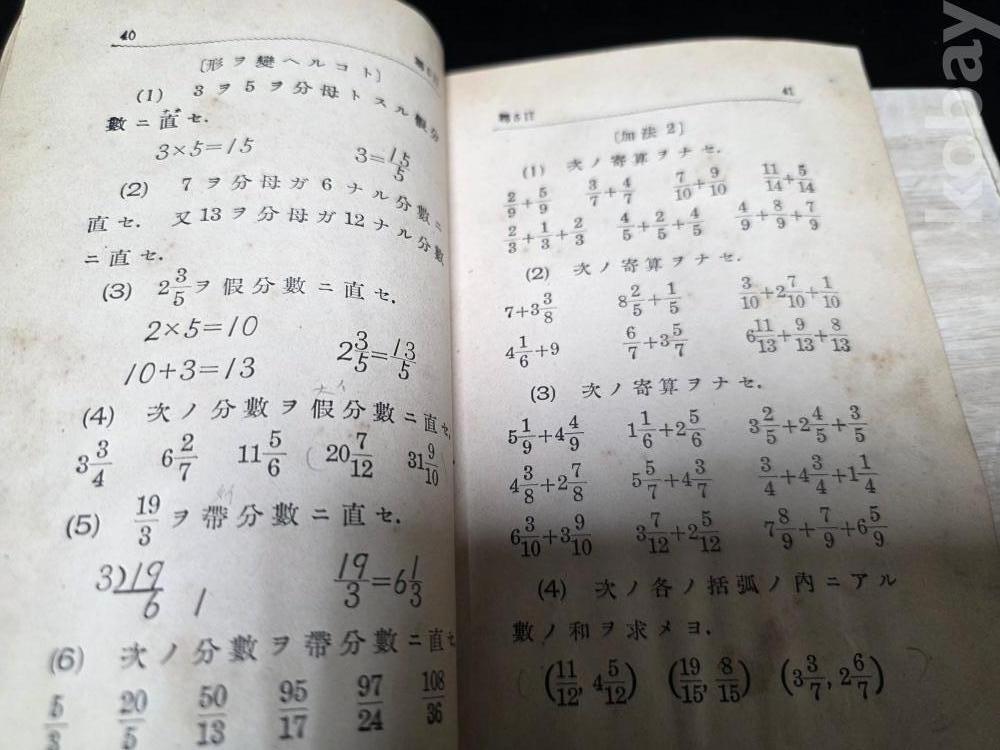 40
[形ヲ變ヘルコト]
(1) 3ヲ5ヲ分母トスル假分
數ニ直セ.
3×5=15 3=15/5
(2) 7ヲ分母ガ6ナル分數ニ
直セ. 又13ヲ分母ガ12ナル分數
ニ直セ.
(3) 2 3/5ヲ假分數ニ直セ.
2×5=10
10+3=13 2 3/5=13/5
(4) 次ノ分數ヲ假分數ニ直セ.
3 3/4 6 2/7 11 5/6 20 7/12 31 9/10
(5) 19/3ヲ帶分數ニ直セ.
3)19 19/3=6 1/3
6 1
(6) 次ノ分數ヲ帶分數ニ直セ
5/3 20/5 50/13 95/17 97/24 108/36
41
[加法2]
(1) 次ノ寄算ヲナセ.
2/9+5/9 3/7+4/7 7/10+9/10 11/14+5/14
2/3+1/3+2/3 4/5+2/5+4/5 4/9+8/9+7/9
(2) 次ノ寄算ヲナセ.
7+3 3/8 8 2/5+1/5 3/10+2 7/10+1/10
4 1/6+9 6/7+3 5/7 6 11/13+9/13+8/13
(3) 次ノ寄算ヲナセ.
5 1/9+4 4/9 1 1/6+2 5/6 3 2/5+2 4/5+3/5
4 3/8+2 7/8 5 5/7+4 3/7 3/4+4 3/4+1 1/4
6 3/10+3 9/10 3 7/12+2 5/12 7 8/9+7/9+6 5/9
(4) 次ノ各ノ括弧ノ內ニアル
數ノ和ヲ求メヨ.
(11/12, 4 5/12) (19/15, 8/15) (3 3/7, 2 6/7)
kobay